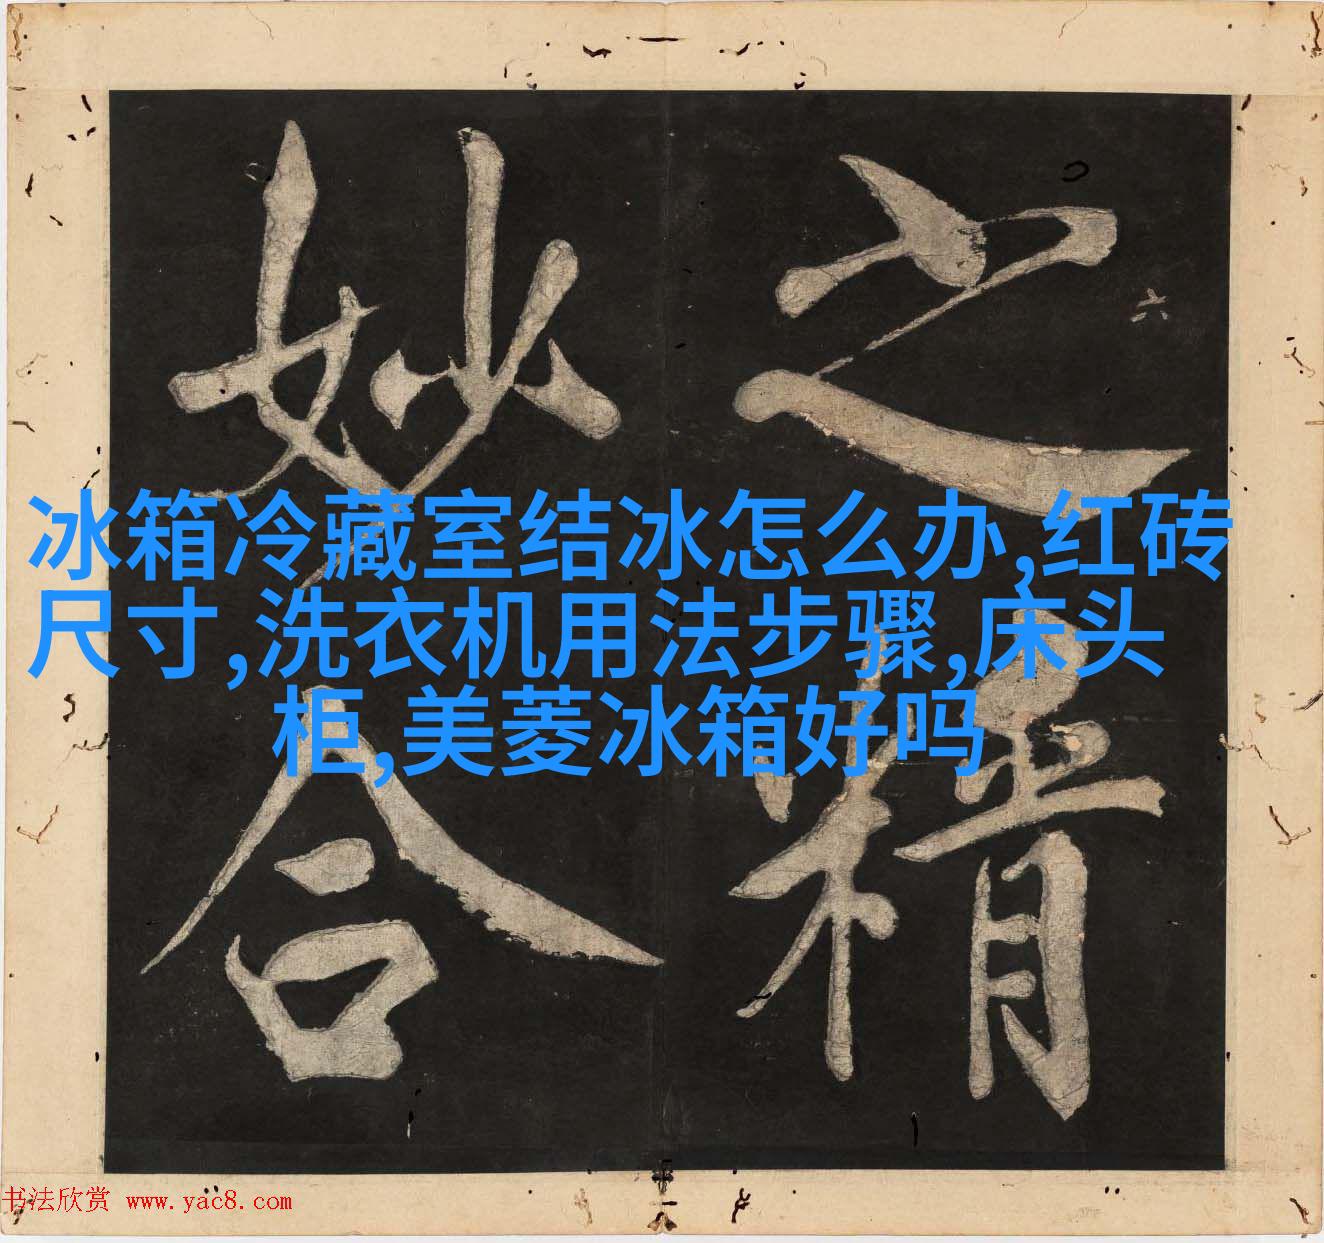 之
精
妙
合
六
冰箱冷藏室结冰怎么办,红砖
尺寸,洗衣机用法步骤,床头
柜,美菱冰箱好吗
书法欣赏 www.yac8.com